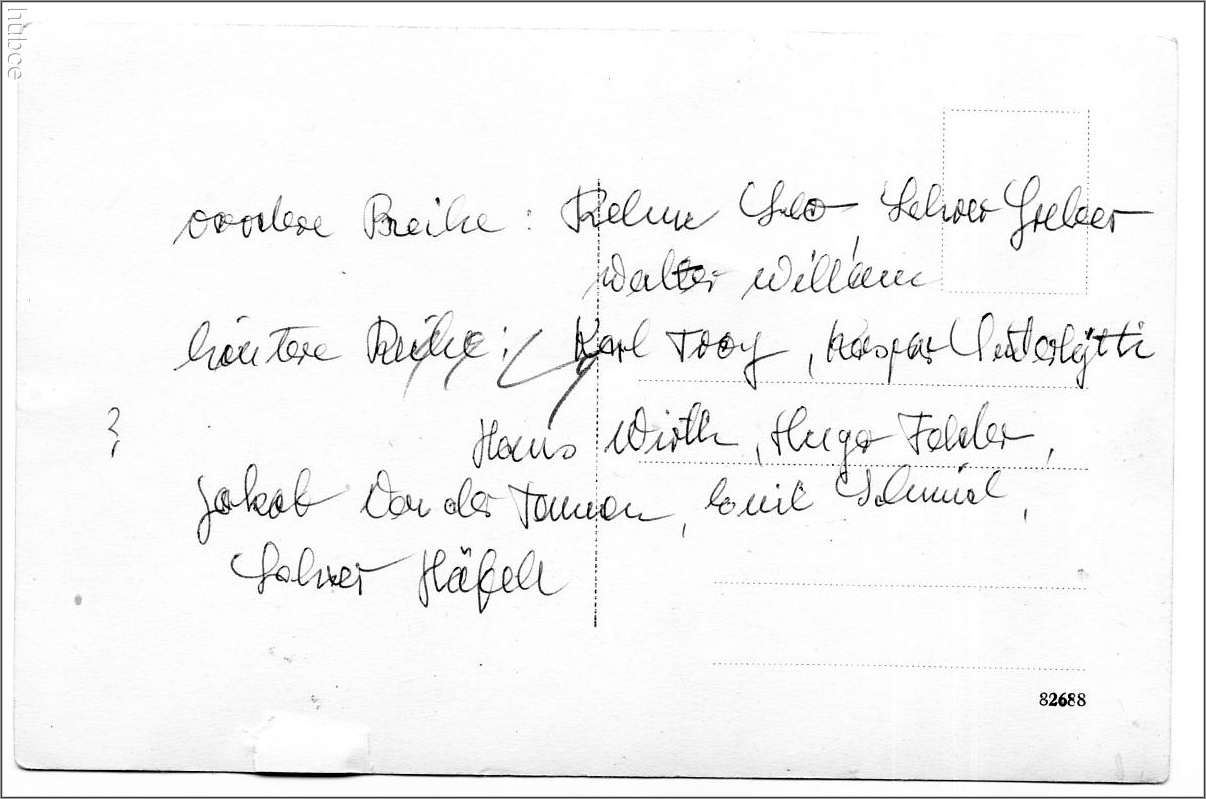 hubee
vordere Reihe : Rehm Leo, Lehrer Greber
Walter Willam
hintere Reihe : Karl Troy, Kaspar
Hans Wirth, Hugo Felder,
Jakob Von der Tannen, Emil Schmid,
Lehrer Häfele
82688